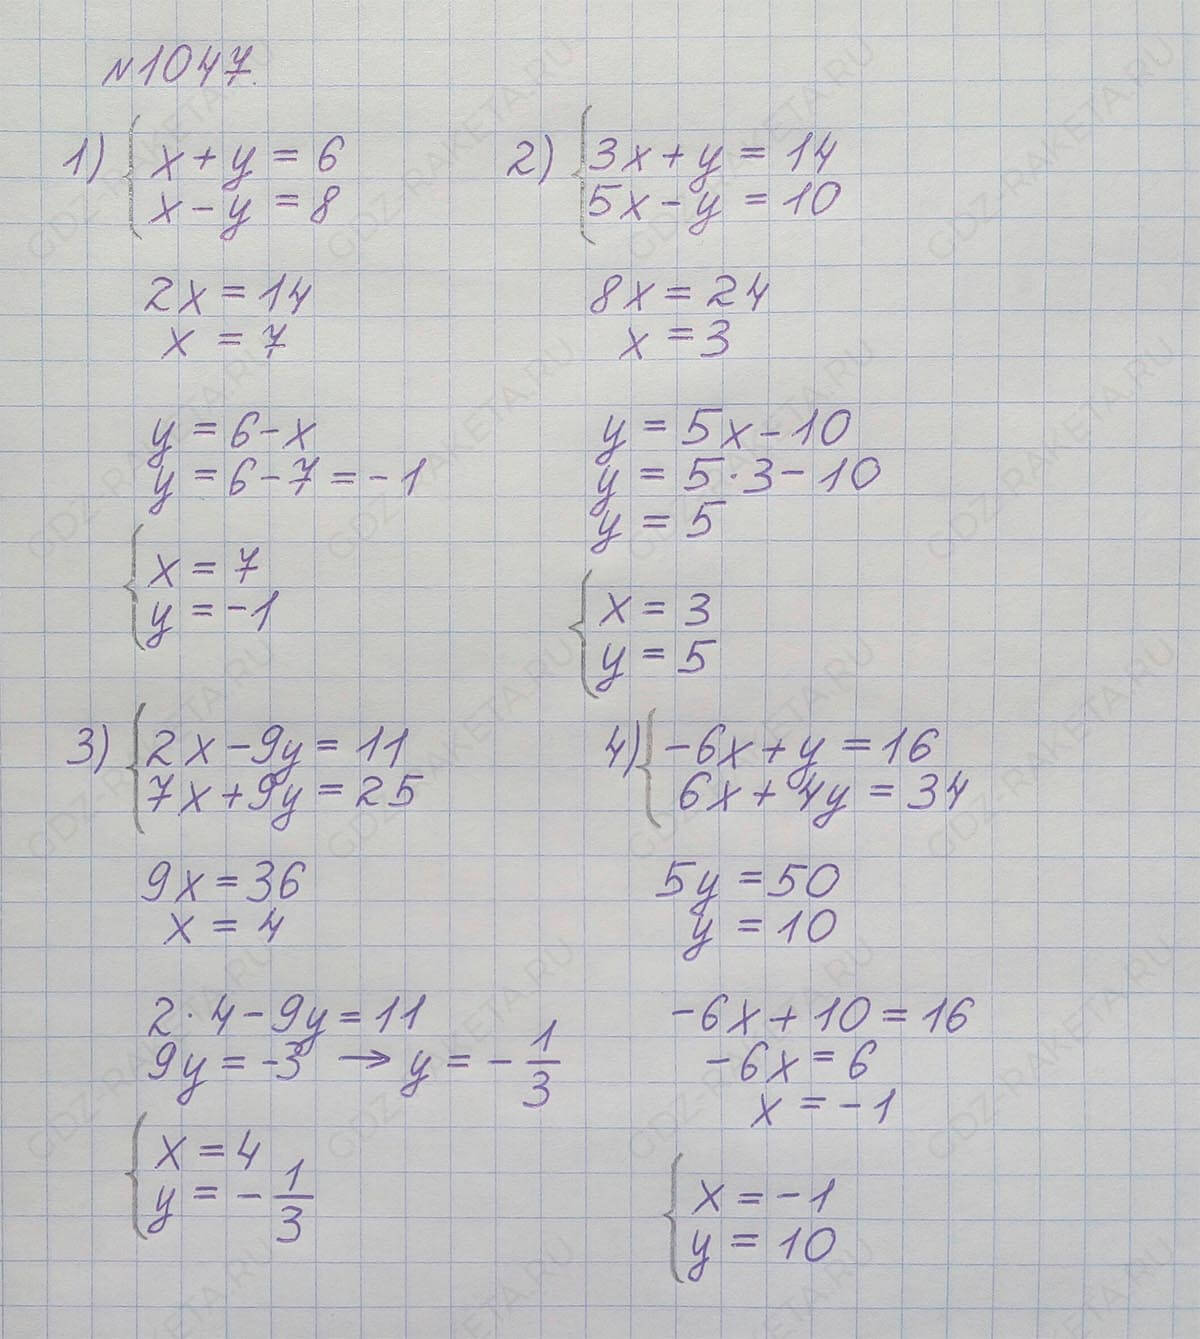 №1047.
1) { x + y = 6
x - y = 8
2x = 14
x = 7
y = 6 - x
y = 6 - 7 = -1
{ x = 7
y = -1
2) { 3x + y = 14
5x - y = 10
8x = 24
x = 3
y = 5x - 10
y = 5 · 3 - 10
y = 5
{ x = 3
y = 5
3) { 2x - 9y = 11
7x + 9y = 25
9x = 36
x = 4
2 · 4 - 9y = 11
9y = -3 → y = -1/3
{ x = 4
y = -1/3
4) { -6x + y = 16
6x + 4y = 34
5y = 50
y = 10
-6x + 10 = 16
-6x = 6
x = -1
{ x = -1
y = 10
GDZ-RAKETA.RU